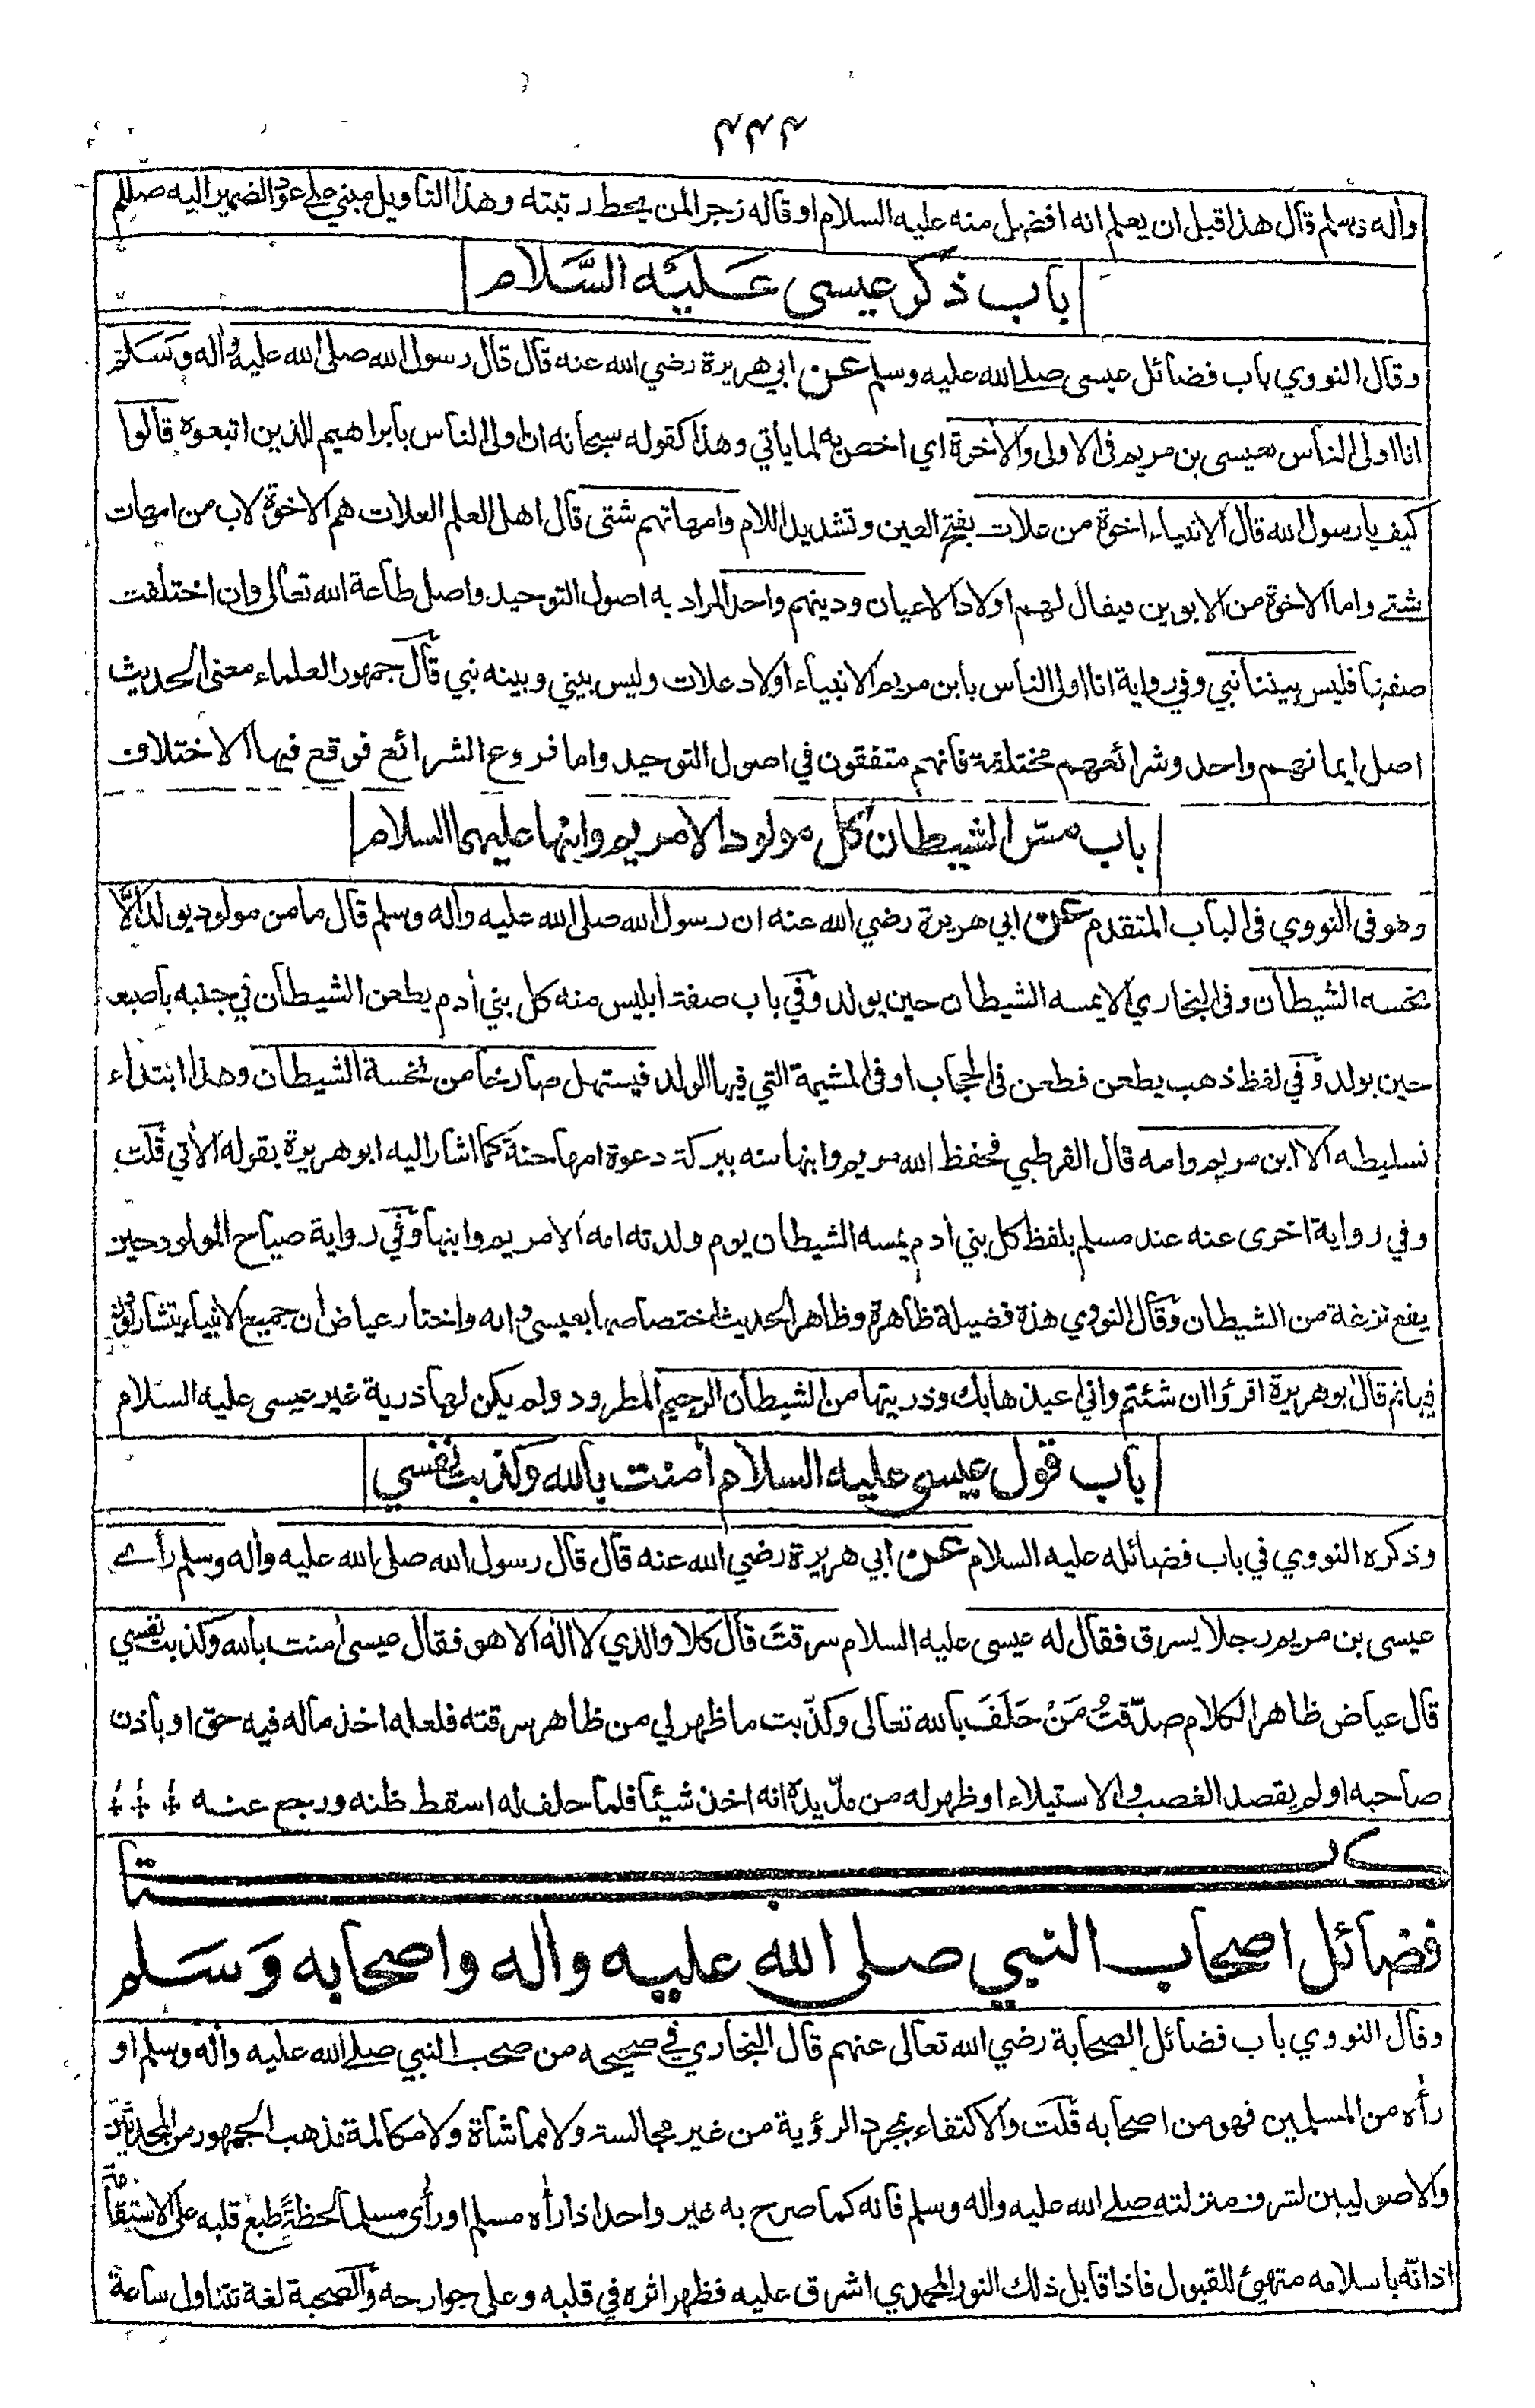 ۴۴۴
واٰله وسلم قال هذا قبل ان يعلم انه افضل منه عليه السلام او قاله زجرا لمن يحط رتبته وهذا التاويل مبني على عود الضمير اليه صللم
باب ذكر عيسى عَلَيْه السَّلام
وقال النووي باب فضائل عيسى صلى الله عليه وسلم عن ابي هريرة رضي الله عنه قال قال رسول الله صلى الله عليه واٰله وَسَلم
انا اولى الناس بعيسى بن مريم فى الاولى والاٰخرة اي اخص به لما ياتي وهذا كقوله سبحانه ان اولى الناس بابراهيم للذين اتبعوه قالوا
كيف يا رسول الله قال الانبياء اخوة من علات بفتح العين وتشديد اللام وامهاتهم شتى قال اهل العلم العلات هم الاخوة لاب من امهات
شتے واما الاخوة من الابوين فيقال لهم اولاد الاعيان ودينهم واحد المراد به اصول التوحيد واصل طاعة الله تعالى وان اختلفت
صفتها فليس بيننا نبي وفي رواية انا اولى الناس بابن مريم الانبياء اولاد علات وليس بيني وبينه نبي قال جمهور العلماء معنى الحديث
اصل ايمانهم واحد وشرائعهم مختلفة فانهم متفقون في اصول التوحيد واما فروع الشرائع فوقع فيها الاختلاف
باب مسّ الشيطان كل مولود الا مريم وابنها عليهما السلام
وهو فى النووي فى الباب المتقدم عن ابي هريرة رضي الله عنه ان رسول الله صلى الله عليه واله وسلم قال ما من مولود يولد الّا
نخسه الشيطان وفى البخاري الا يمسه الشيطان حين يولد وفي باب صفة ابليس منه كل بني اٰدم يطعن الشيطان في جنبه باصبعه
حين يولد وفي لفظ ذهب يطعن فطعن فى الحجاب او فى المشيمة التي فيها الولد فيستهل صارخا من نخسة الشيطان وهذا ابتداء
تسليطه الا ابن مريم وامه قال القرطبي فحفظ الله مريم وابنها منه ببركة دعوة امها حنة كما اشار اليه ابو هريرة بقوله الاٰتي قلت
وفي رواية اخرى عنه عند مسلم بلفظ كل بني اٰدم يمسه الشيطان يوم ولدته امه الا مريم وابنها وفي رواية صياح المولود حين
يقع نزغة من الشيطان وقال النووي هذه فضيلة ظاهرة وظاهر الحديث اختصاصها بعيسى وامه واختار عياض ان جميع الانبياء يتشاركون
فيها ثم قال ابو هريرة اقرؤا ان شئتم واني اعيذها بك وذريتها من الشيطان الرجيم المطرود ولم يكن لها ذرية غير عيسى عليه السلام
باب قول عيسى عليه السلام اٰمنت بالله وكذبت نفسي
وذكره النووي في باب فضائله عليه السلام عن ابي هريرة رضي الله عنه قال قال رسول الله صلى الله عليه واٰله وسلم رأے
عيسى بن مريم رجلا يسرق فقال له عيسى عليه السلام سرقتَ قال كلا والذي لا اله الا هو فقال عيسى اٰمنت بالله وكذبت نفسي
قال عياض ظاهر الكلام صدّقتُ مَنْ حَلَفَ بالله تعالى وكذّبت ما ظهر لي من ظاهر سرقته فلعله اخذ ماله فيه حق او باذن
صاحبه او لم يقصد الغصب والاستيلاء او ظهر له من مدّ يده انه اخذ شيئا فلما حلف له اسقط ظنه ورجع عنه
كتاب
فضائل اصحاب النبي صلى الله عليه واٰله واصحابه وَسَلم
وقال النووي باب فضائل الصحابة رضي الله تعالى عنهم قال البخاري في صحيحه من صحب النبي صلے الله عليه واٰله وسلم او
رأه من المسلمين فهو من اصحابه قلت والاكتفاء بمجرد الرؤية من غير مجالسة ولا مماشاة ولا مكالمة مذهب الجمهور من المحدثين
والاصوليين لشرف منزلته صلے الله عليه واله وسلم فانه كما صرح به غير واحد اذا رأه مسلم او رأى مسلما لحظةً طبع قلبه على الاستقامة
اذ انّه باسلامه متهيئ للقبول فاذا قابل ذلك النور المحمدي اشرق عليه فظهر اثره في قلبه وعلى جوارحه والصحبة لغة تتناول ساعة